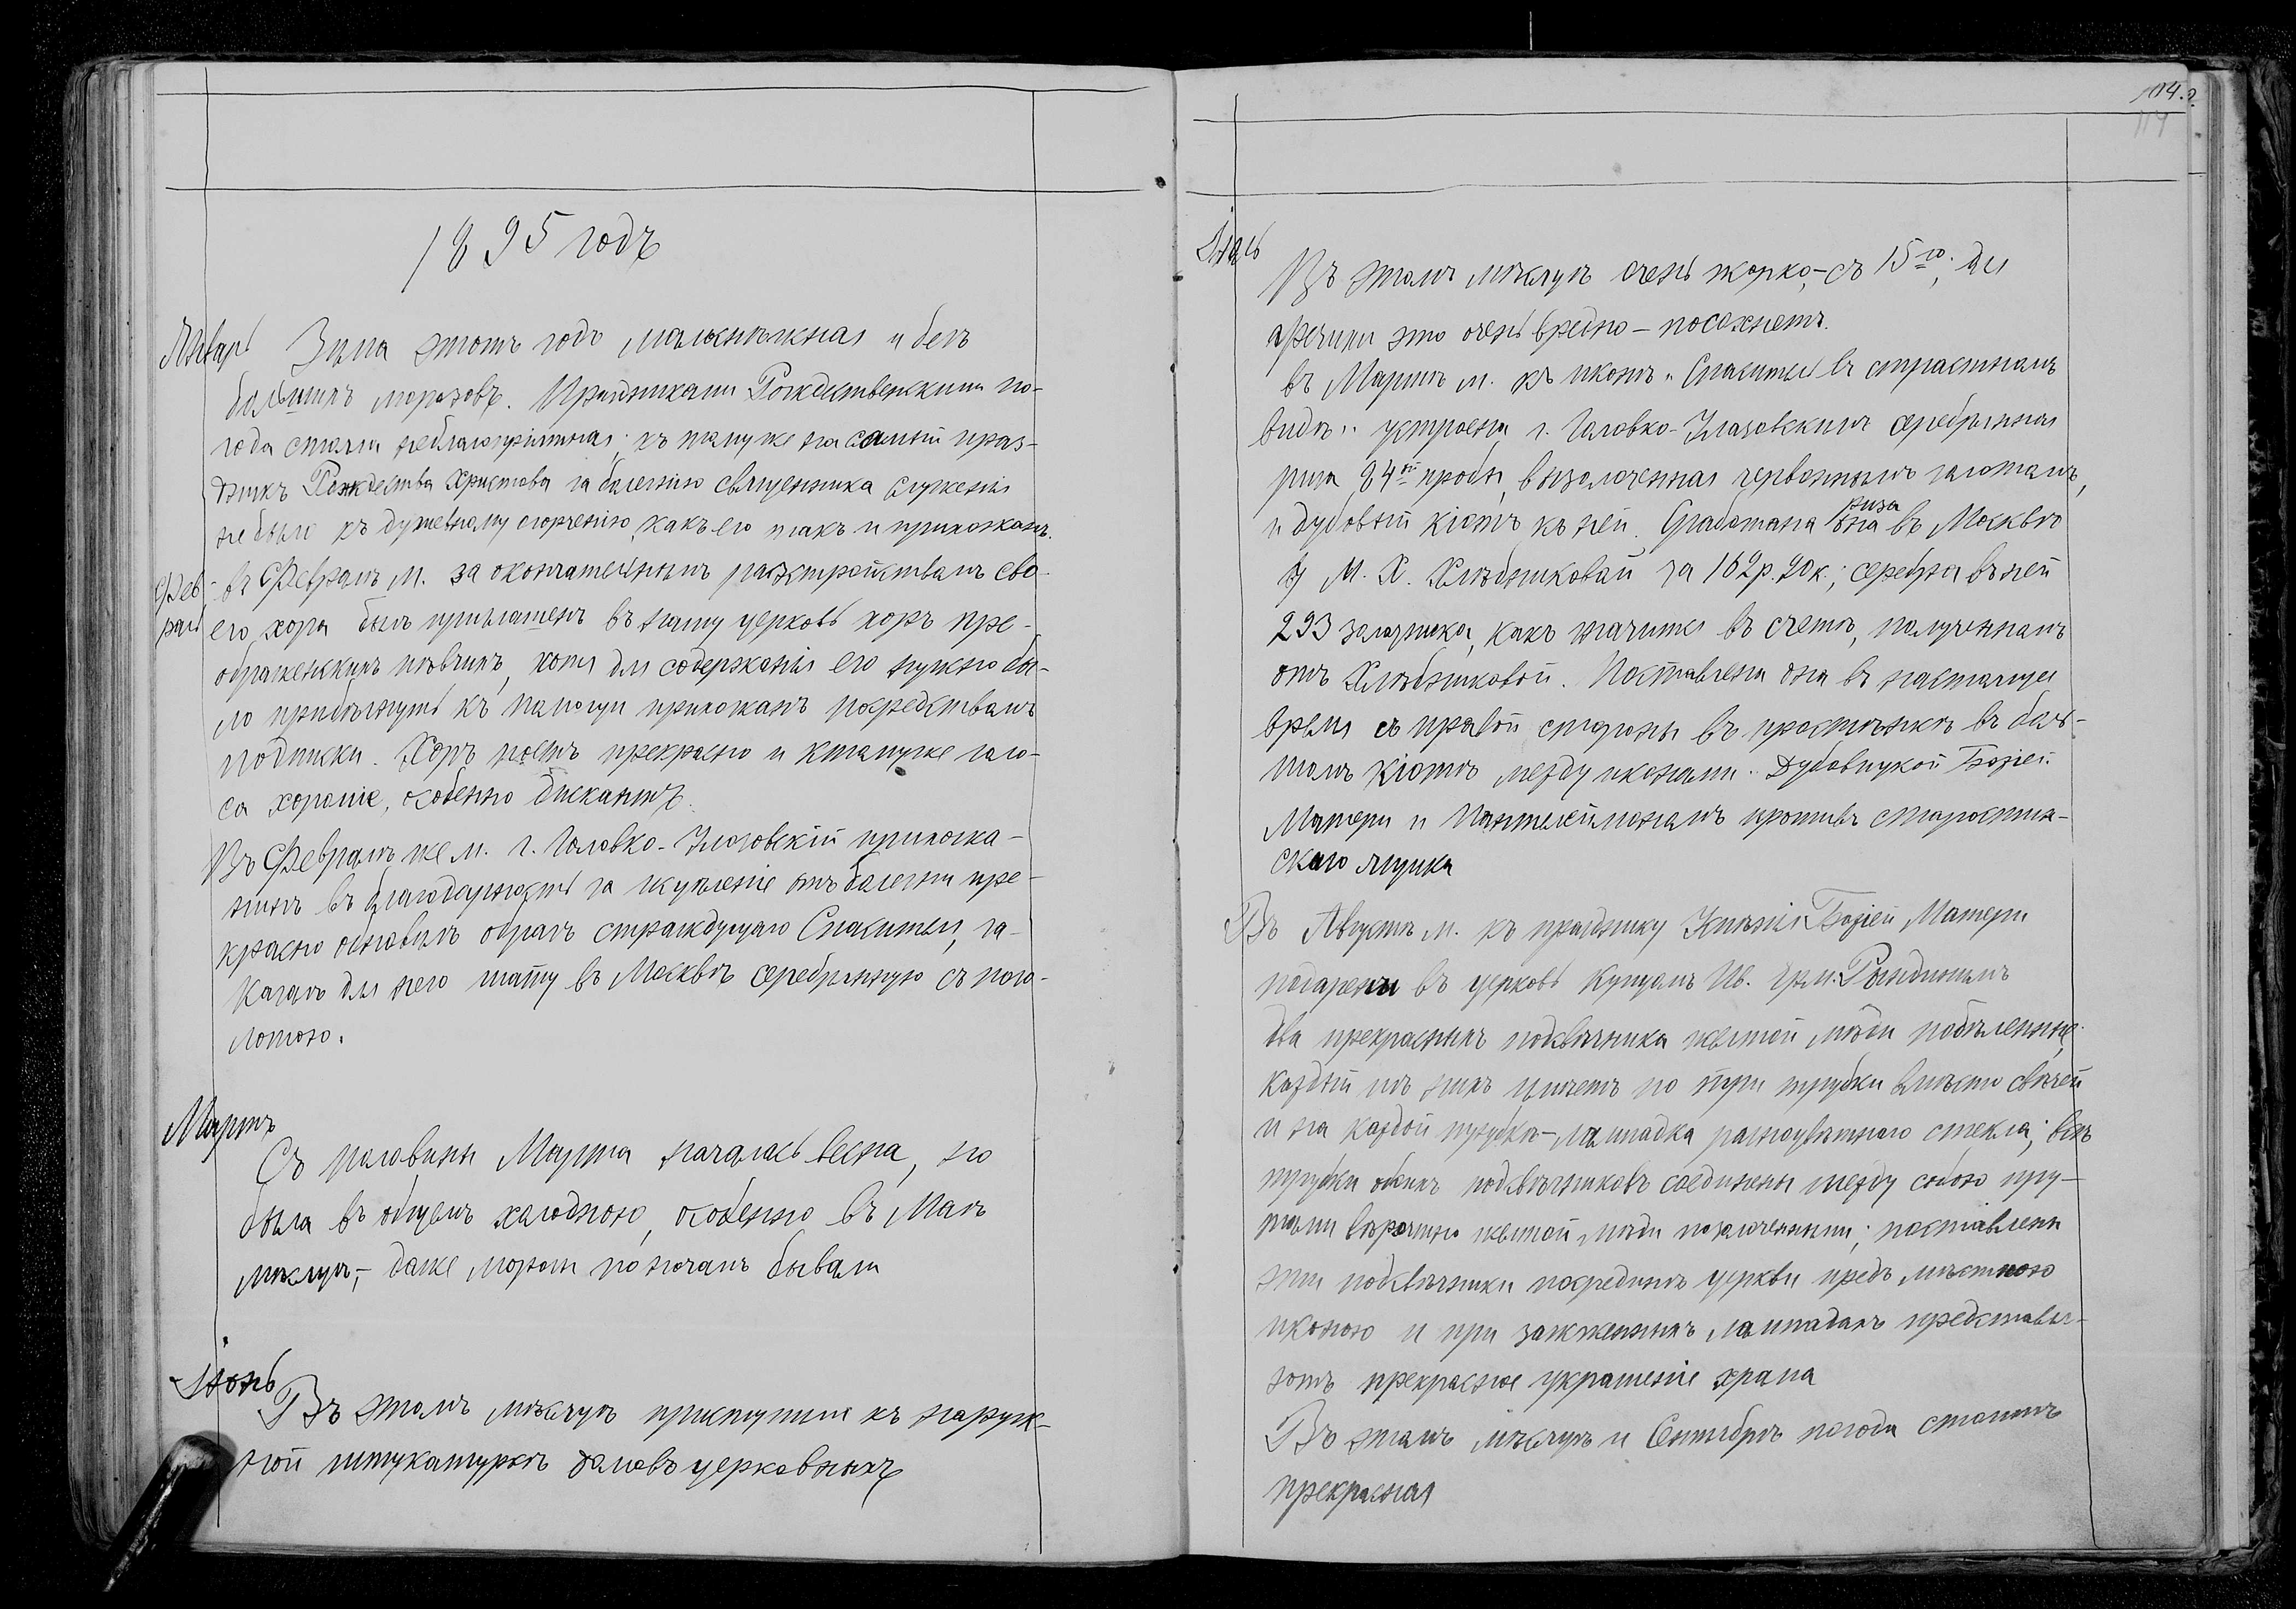 1895 годъ
Январь Зима этотъ годъ малоснѣжная и безъ
большихъ морозовъ. Праздниками Рождественскими по-
года стояла неблагопріятная; къ тому же на самый праз-
дникъ Рождества Христова за болезнію священника служенія
не было къ душевному огорченію какъ его такъ и прихожанъ.
Фев-
раль
въ Февралѣ м. за окончательнымъ разстройствомъ сво-
его хора былъ приглашенъ въ нашу церковь хоръ пре-
ображенскихъ пѣвчихъ, хотя для содержанія его нужно бы-
ло прибѣгнуть къ помощи прихожанъ посредствомъ
подписки. Хоръ поетъ прекрасно и ктому же голо-
са хорошіе, особенно дискантъ.
Въ Февралѣ же м. г. Головко-Улазовскій прихожа-
нинъ въ благодарность за исцѣленіе отъ болезни пре-
красно обновилъ образъ страждущаго Спасителя, за-
казалъ для него ризу въ Москвѣ серебрянную съ позо-
лотою.
Мартъ
Съ половины Марта началась весна, но
была въ общемъ холодною, особенно въ Маѣ
мѣсяцѣ,- даже морозы по ночамъ бывали
Іюнь
Въ этомъ мѣсяцѣ приступили къ наруж-
ной штукатуркѣ домовъ церковныхъ
104.
114
Іюль
Въ этомъ мѣсяцѣ очень жарко,- съ 15го, для
гречихи это очень вредно - посохнетъ.
въ Мартѣ м. къ иконѣ "Спасителя въ страстномъ
видѣ" устроена г. Головко-Улазовскимъ серебрянная
риза 84й пробы, вызолоченная червоннымъ золотомъ,
и дубовый кіотъ къ ней. Сработана риза она въ Москвѣ
у М. Х. Хлѣбниковой за 162 р. 20 к.; серебра въ ней
293 золотника, какъ значится въ счетѣ, полученномъ
отъ Хлѣбниковой. Поставлена она въ настоящее
время съ правой стороны въ простѣнкѣ въ боль-
шомъ кіотѣ между иконами: Дубовицкой Божіей
Матери и Пантелеймономъ противъ старостин-
скаго ящика
Въ Августѣ м. къ празднику Успѣнія Божіей Матери
подарены въ церковь купцомъ Ив. Рындинымъ
два прекрасныхъ подсвѣчника желтой мѣди побѣленные,
каждый изъ нихъ имѣетъ по три трубки вмѣсто свѣчей
и на каждой трубкѣ - лампадка разноцвѣтнаго стекла; всѣ
трубки обоихъ подсвѣчниковъ соединены между собою пру-
тьями желтой мѣди позолоченными; поставлены
эти подсвѣчники посрединѣ церкви предъ мѣстною
иконою и при зажженныхъ лампадахъ представля-
ютъ прекрасное украшеніе храма
Въ этомъ мѣсяцѣ и Сентябрѣ погода стоитъ
прекрасная